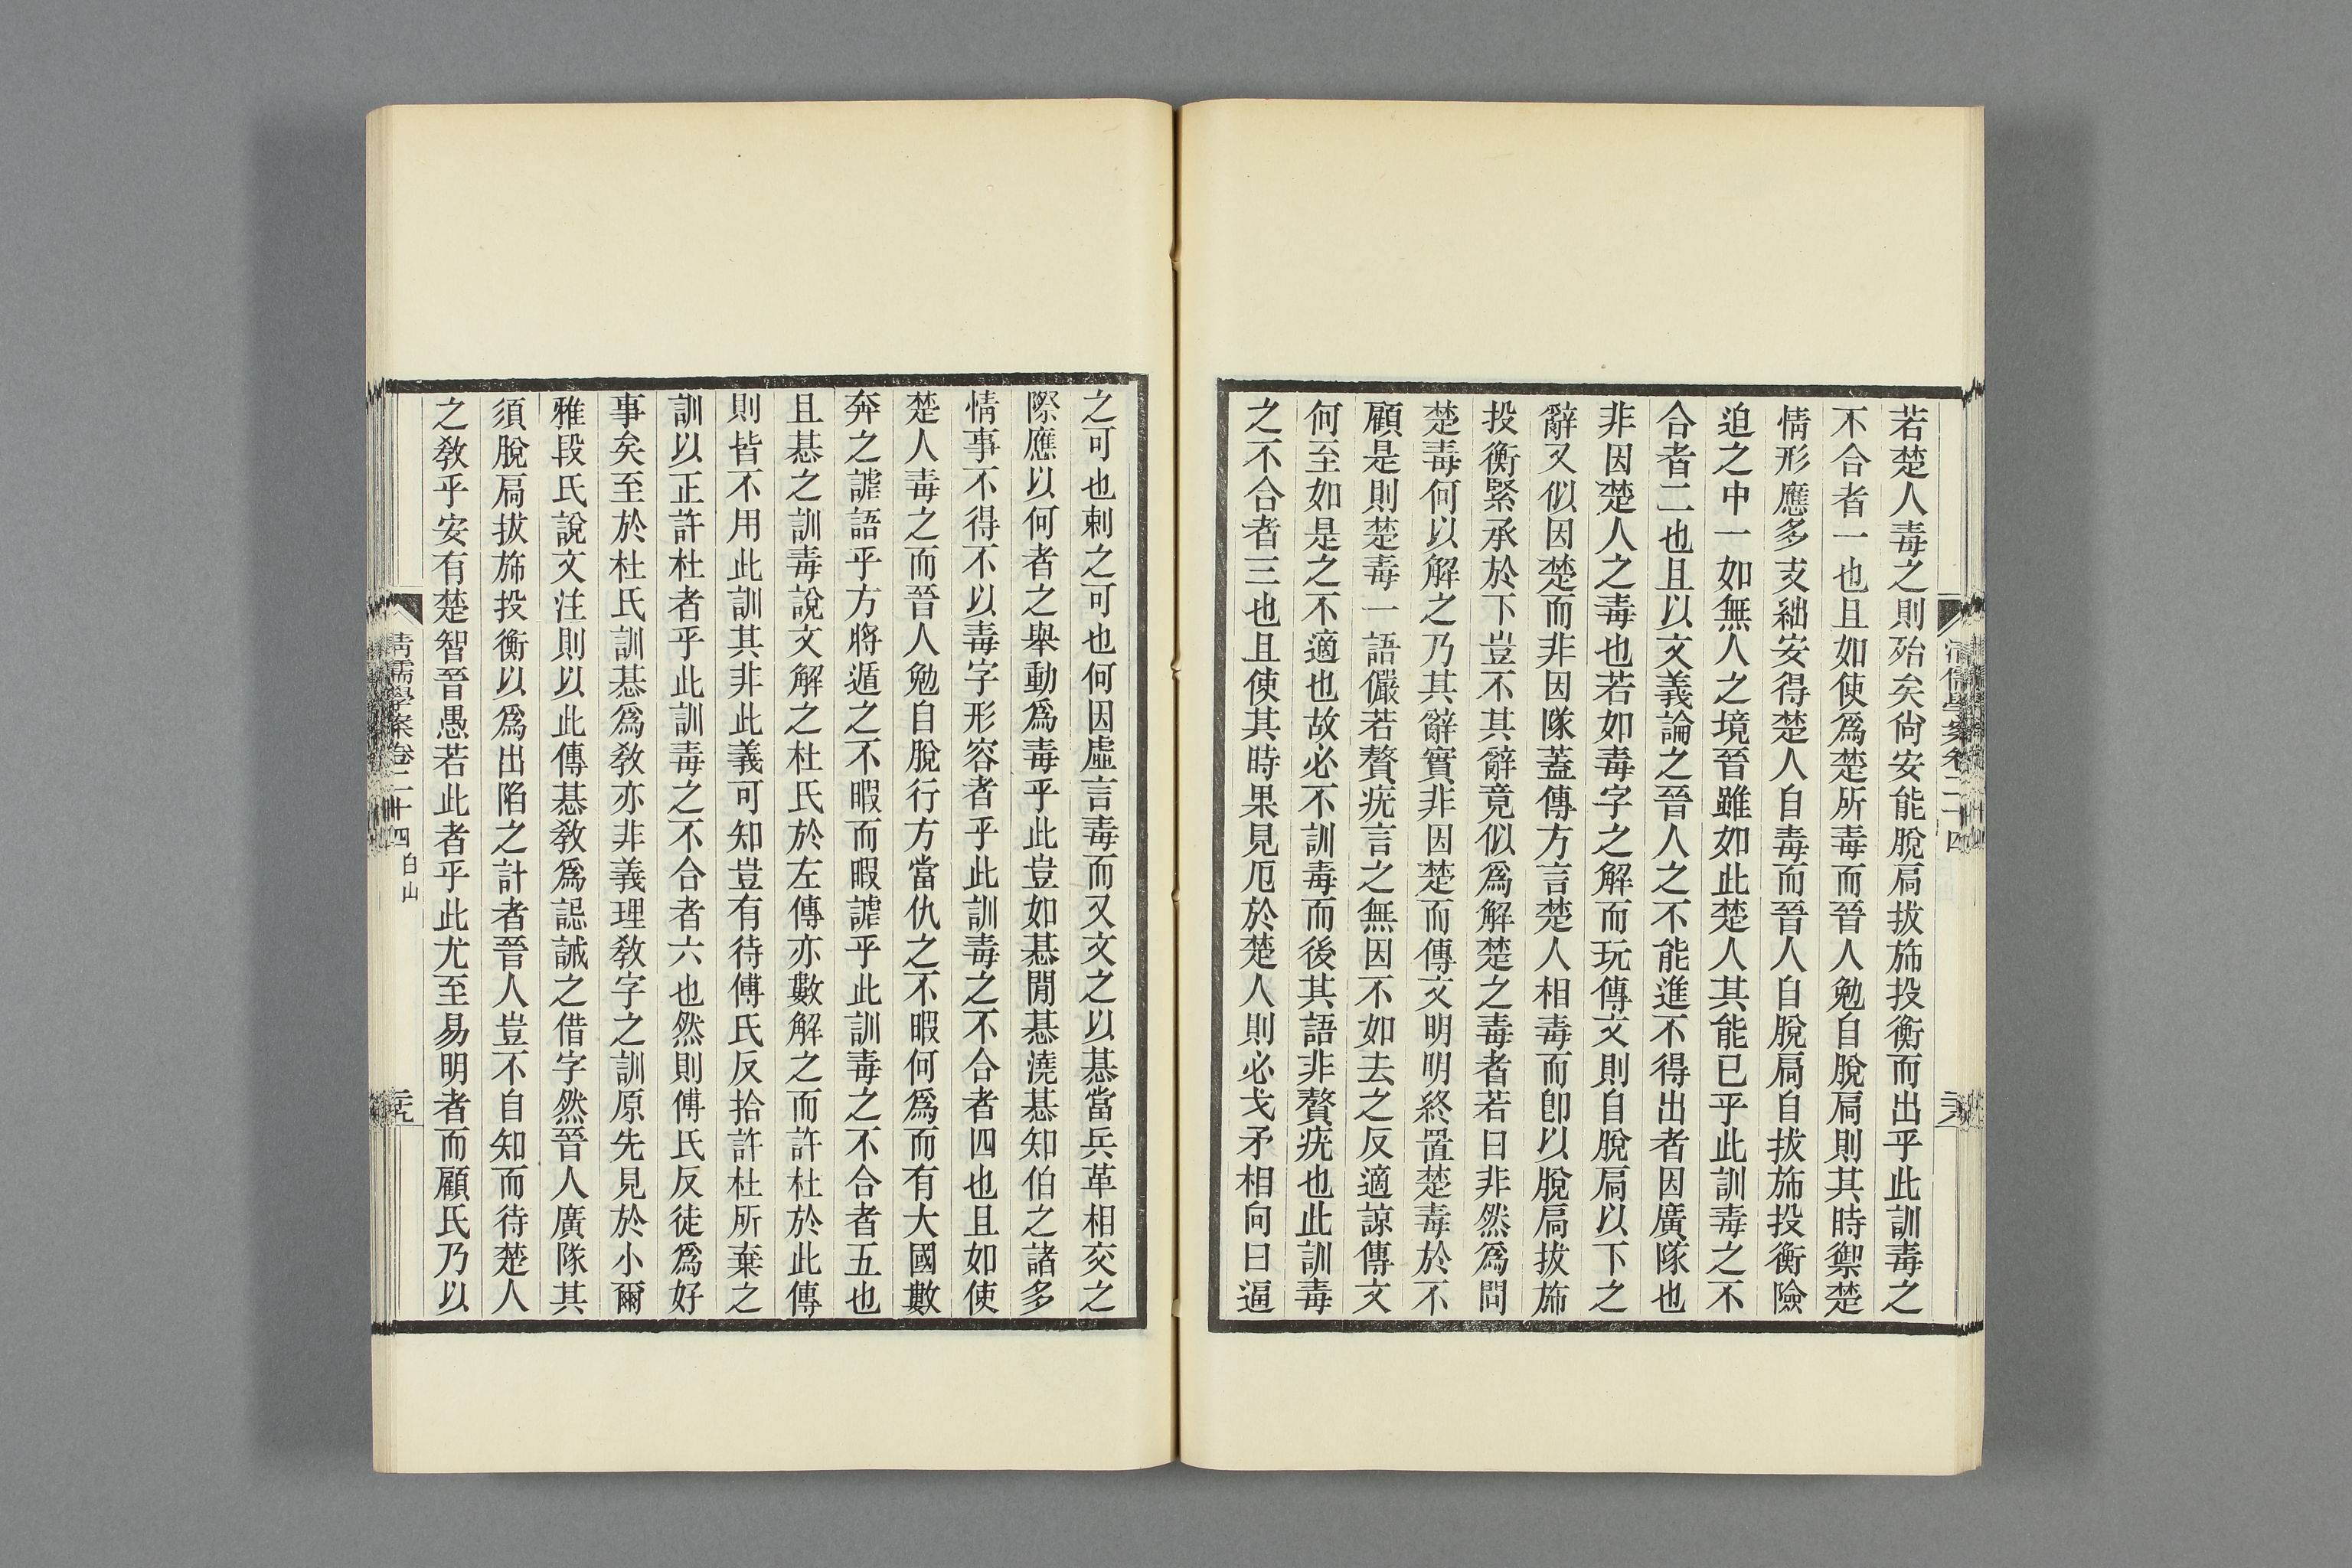 若楚人毒之則殆矣尙安能脫扃拔斾投衡而出乎此訓毒之
不合者一也且如使爲楚所毒而晉人勉自脫扃則其時禦楚
情形應多支絀安得楚人自毒而晉人自脫扃自拔斾投衡險
迫之中一如無人之境晉雖如此楚人其能已乎此訓毒之不
合者二也且以文義論之晉人之不能進不得出者因廣隊也
非因楚人之毒也若如毒字之解而玩傳文則自脫扃以下之
辭又似因楚而非因隊蓋傳方言楚人相毒而卽以脫扃拔斾
投衡緊承於下豈不其辭竟似爲解楚之毒者若曰非然爲問
楚毒何以解之乃其辭實非因楚而傳文明明終置楚毒於不
顧是則楚毒一語儼若贅疣言之無因不如去之反適諒傳文
何至如是之不適也故必不訓毒而後其語非贅疣也此訓毒
之不合者三也且使其時果見厄於楚人則必戈矛相向曰逼
清儒學案卷二十四
之可也刺之可也何因虛言毒而又文之以惎當兵革相交之
際應以何者之舉動爲毒乎此豈如惎閒惎澆惎知伯之諸多
情事不得不以毒字形容者乎此訓毒之不合者四也且如使
楚人毒之而晉人勉自脫行方當仇之不暇何爲而有大國數
奔之謔語乎方將遁之不暇而暇謔乎此訓毒之不合者五也
且惎之訓毒說文解之杜氏於左傳亦數解之而許杜於此傳
則皆不用此訓其非此義可知豈有待傅氏反拾許杜所棄之
訓以正許杜者乎此訓毒之不合者六也然則傅氏反徒爲好
事矣至於杜氏訓惎爲敎亦非義理敎字之訓原先見於小爾
雅段氏說文注則以此傳惎敎爲誋誡之借字然晉人廣隊其
須脫扃拔斾投衡以爲出陷之計者晉人豈不自知而待楚人
之敎乎安有楚智晉愚若此者乎此尤至易明者而顧氏乃以
清儒學案卷二十四 白山